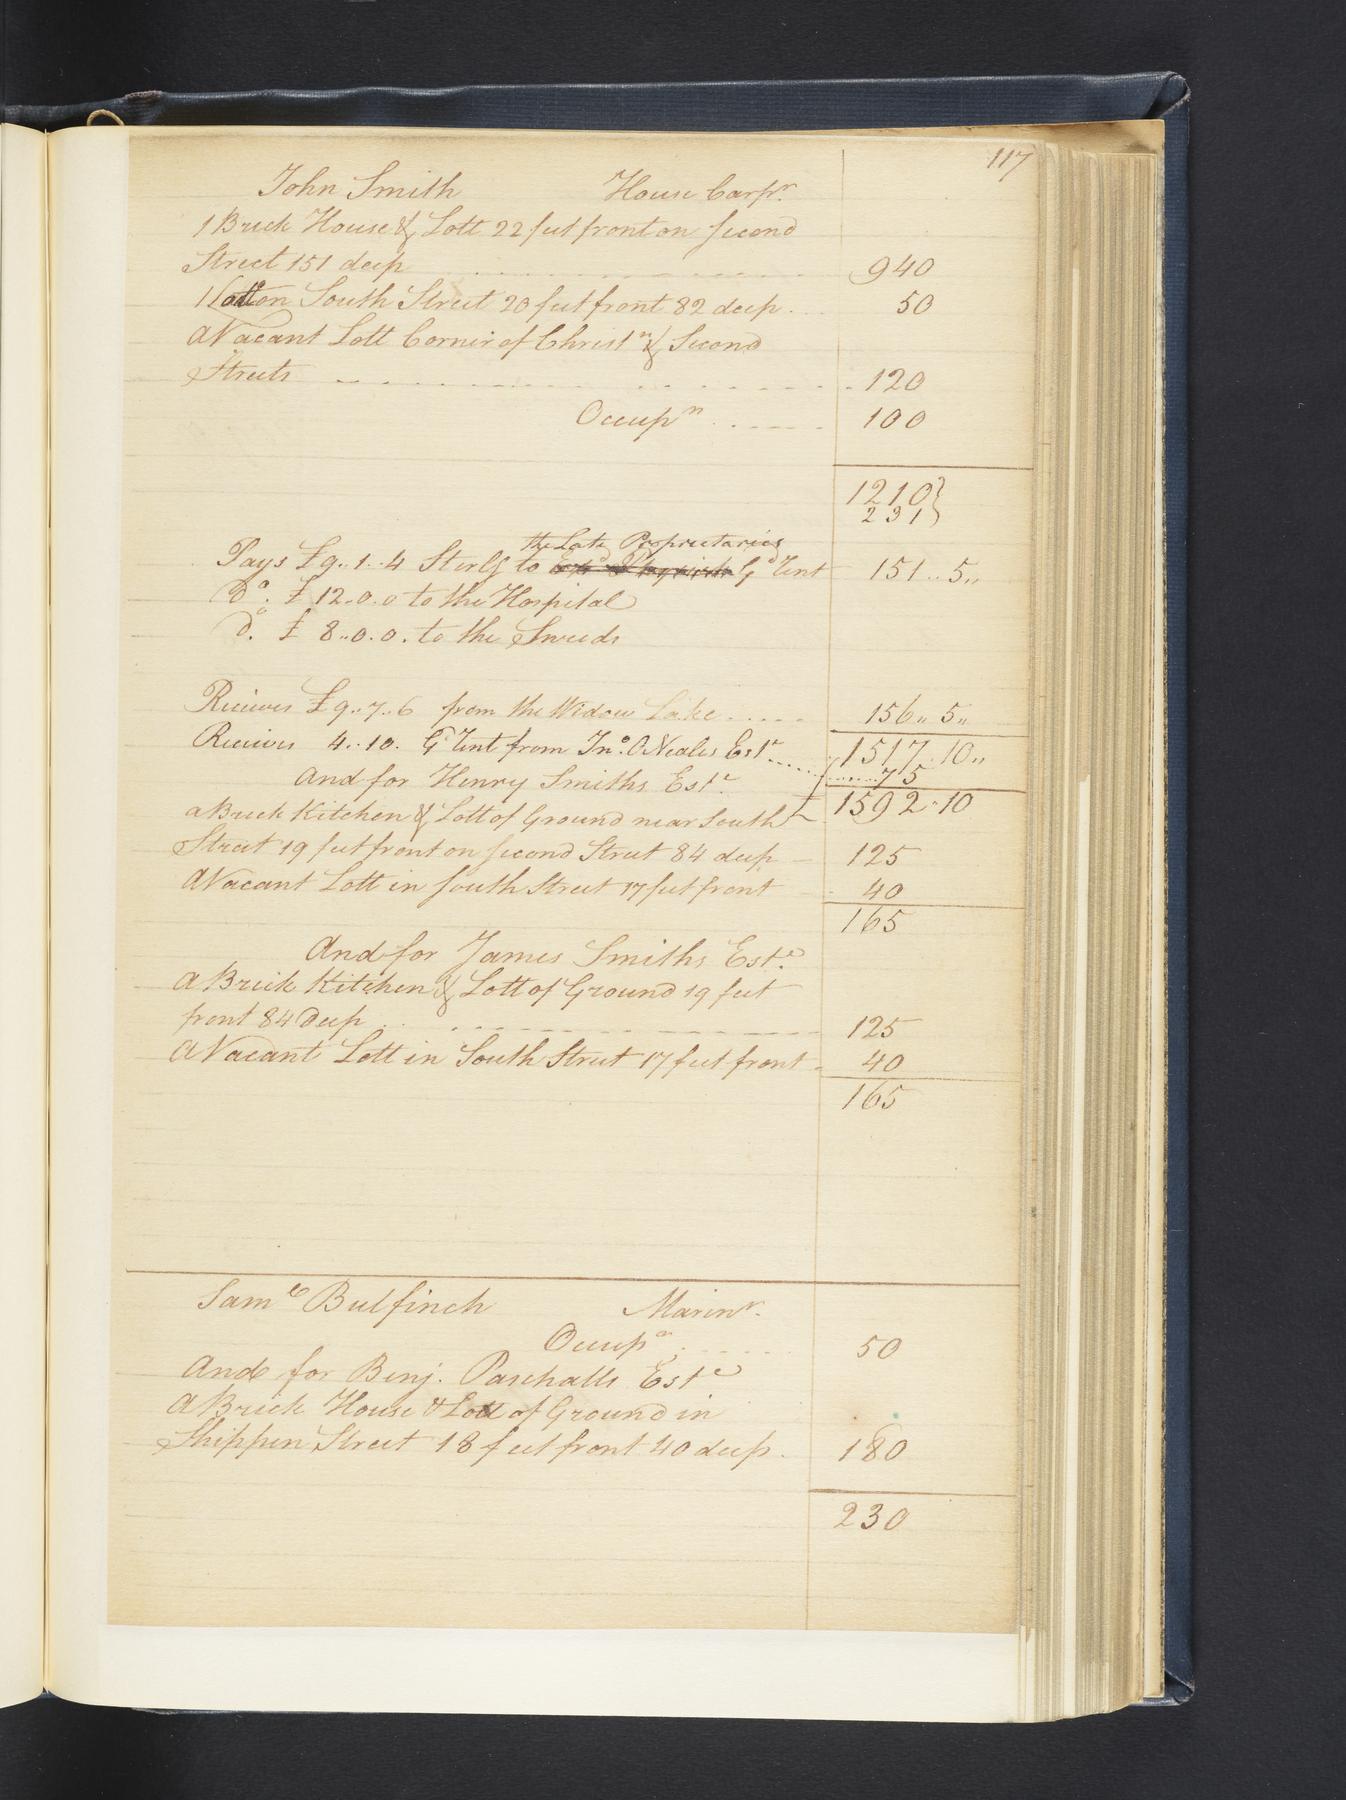 117
John Smith House Carpr.
1 Brick House & Lott 22 feet front on Second
Street 151 deep 940
1 Lott on South Street 20 feet front 82 deep 50
a Vacant Lott Corner of Christn & Second
Streets 120
Occupn 100
1210
231
the Late Proprietaries
Pays £9..1..4 Sterlg to Gd Rent 151..5..
Do. £12.0.0 to the Hospital
Do. £8..0.0. to the Sweeds
Recieves £9..7..6 from the Widow Lake 156..5..
1517..10..
Recieves 4..10. Gd Rent from Jno. ONeales Este 75
And for Henry Smiths Este. 1592..10
a Brick Kitchen & Lott of Ground near South
Street 19 feet front on Second Street 84 deep 125
a Vacant Lott in South Street 17 feet front 40
165
And for James Smiths Este.
a Brick Kitchen & Lott of Ground 19 feet
front 84 Deep 125
a Vacant Lott in South Street 17 feet front 40
165
Saml Bulfinch Marinr.
Occupn 50
And for Benj. Paschalls Este
a Brick House & Lott of Ground in
Shippen Street 18 feet front 40 deep. 180
230